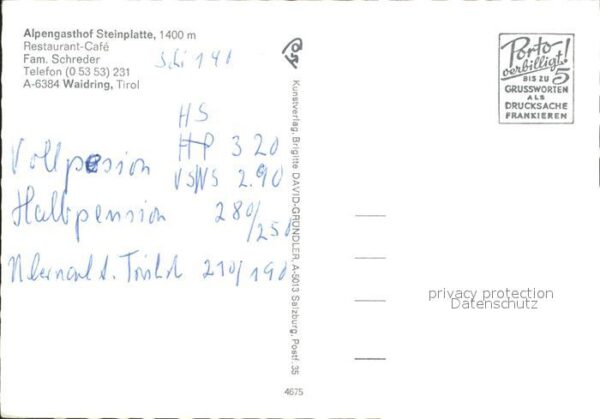 Alpengasthof Steinplatte, 1400 m
Restaurant-Café
Fam. Schreder
Telefon (0 53 53) 231
A-6384 Waidring, Tirol
Ski 140
HS
HP 320
Vollpesion VS/NS 2.90
Halbpension 280/250
210/190
Kunstverlag, Brigitte DAVID-GRÜNDLER, A-5013 Salzburg, Postf. 35
4675
Porto
verbilligt!
BIS ZU 5
GRUSSWORTEN
ALS
DRUCKSACHE
FRANKIEREN
privacy protection
Datenschutz